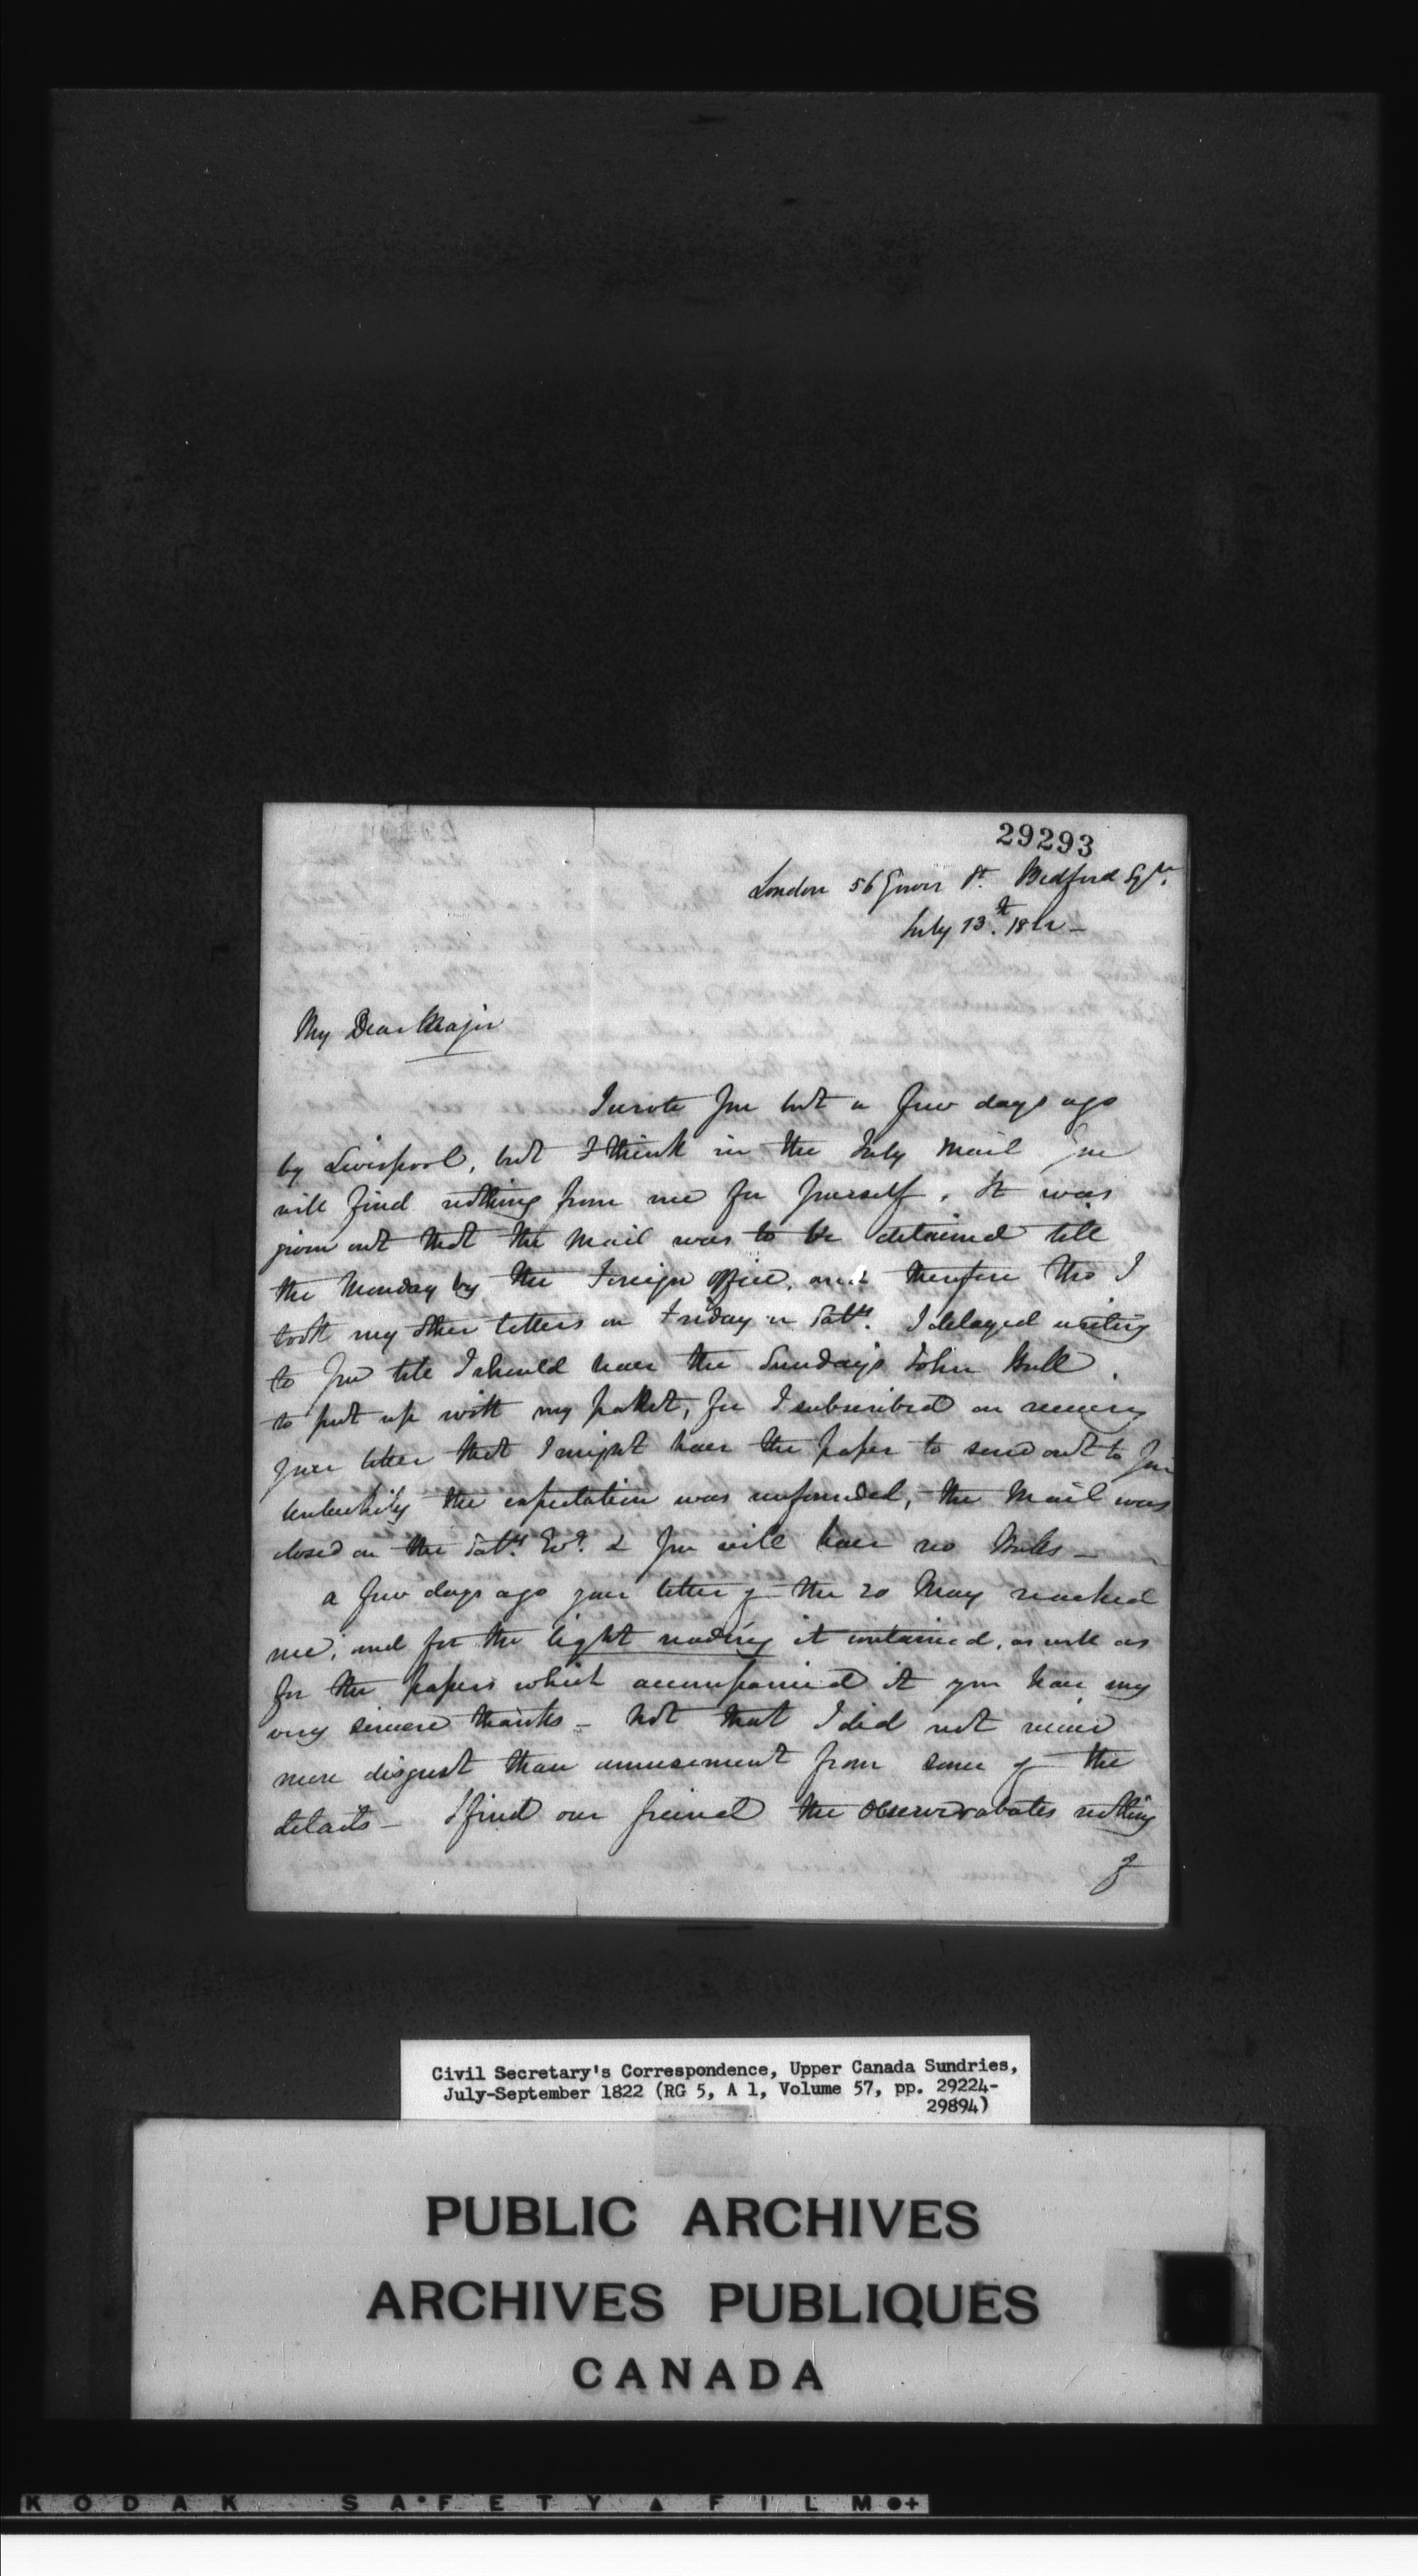 29293
London 56 Gower St. Bedford Sqre.
July 13th. 1822 -
My Dear Major
I wrote you but a few days ago
by Liverpool, but I think in the July mail you
will find nothing from me for yourself. It was
given out that the mail was to be detained till
the Monday by the Foreign Office, and therefore tho I
took my other letters on Friday or Saty. I delayed writing
to you till I should have the Sunday's John Bull
to put up with my packet, for I subscribed on receiving
your letter that I might have the paper to send out to you
Unluckily the expectation was unfounded, the Mail was
closed on the Saty. Evg. & you will have no Bulls -
a few days ago your letter of the 20 May reached
me, and for the light reading it contained, as well as
for the papers which accompanied it you have my
very sincere thanks - Not that I did not receive
more disgust than amusement from some of the
details - I find our friend the Observer abates nothing
of
Civil Secretary's Correspondence, Upper Canada Sundries,
July-September 1822 (RG 5, A 1, Volume 57, pp. 29224-
29894)
PUBLIC ARCHIVES
ARCHIVES PUBLIQUES
CANADA
KODAK SAFETY FILM